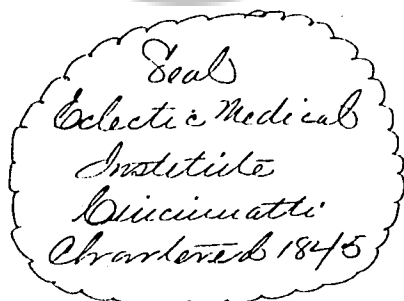 Seal
Eclectic Medical
Institute
Cincinnatti
Chartered 1845